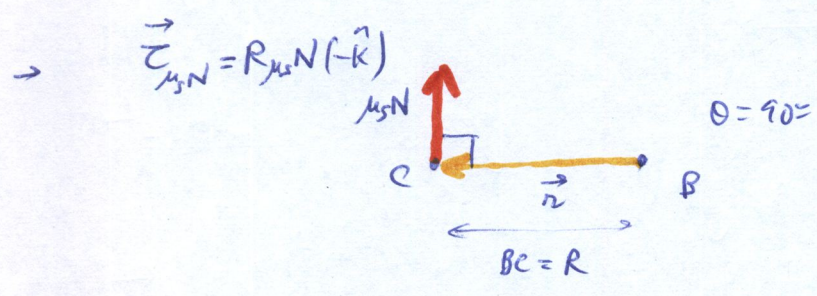 → $\vec{\tau}_{\mu_s N} = R\mu_s N(-\hat{k})$
μsN
θ = 90=
C
$\vec{r}$
B
BC = R